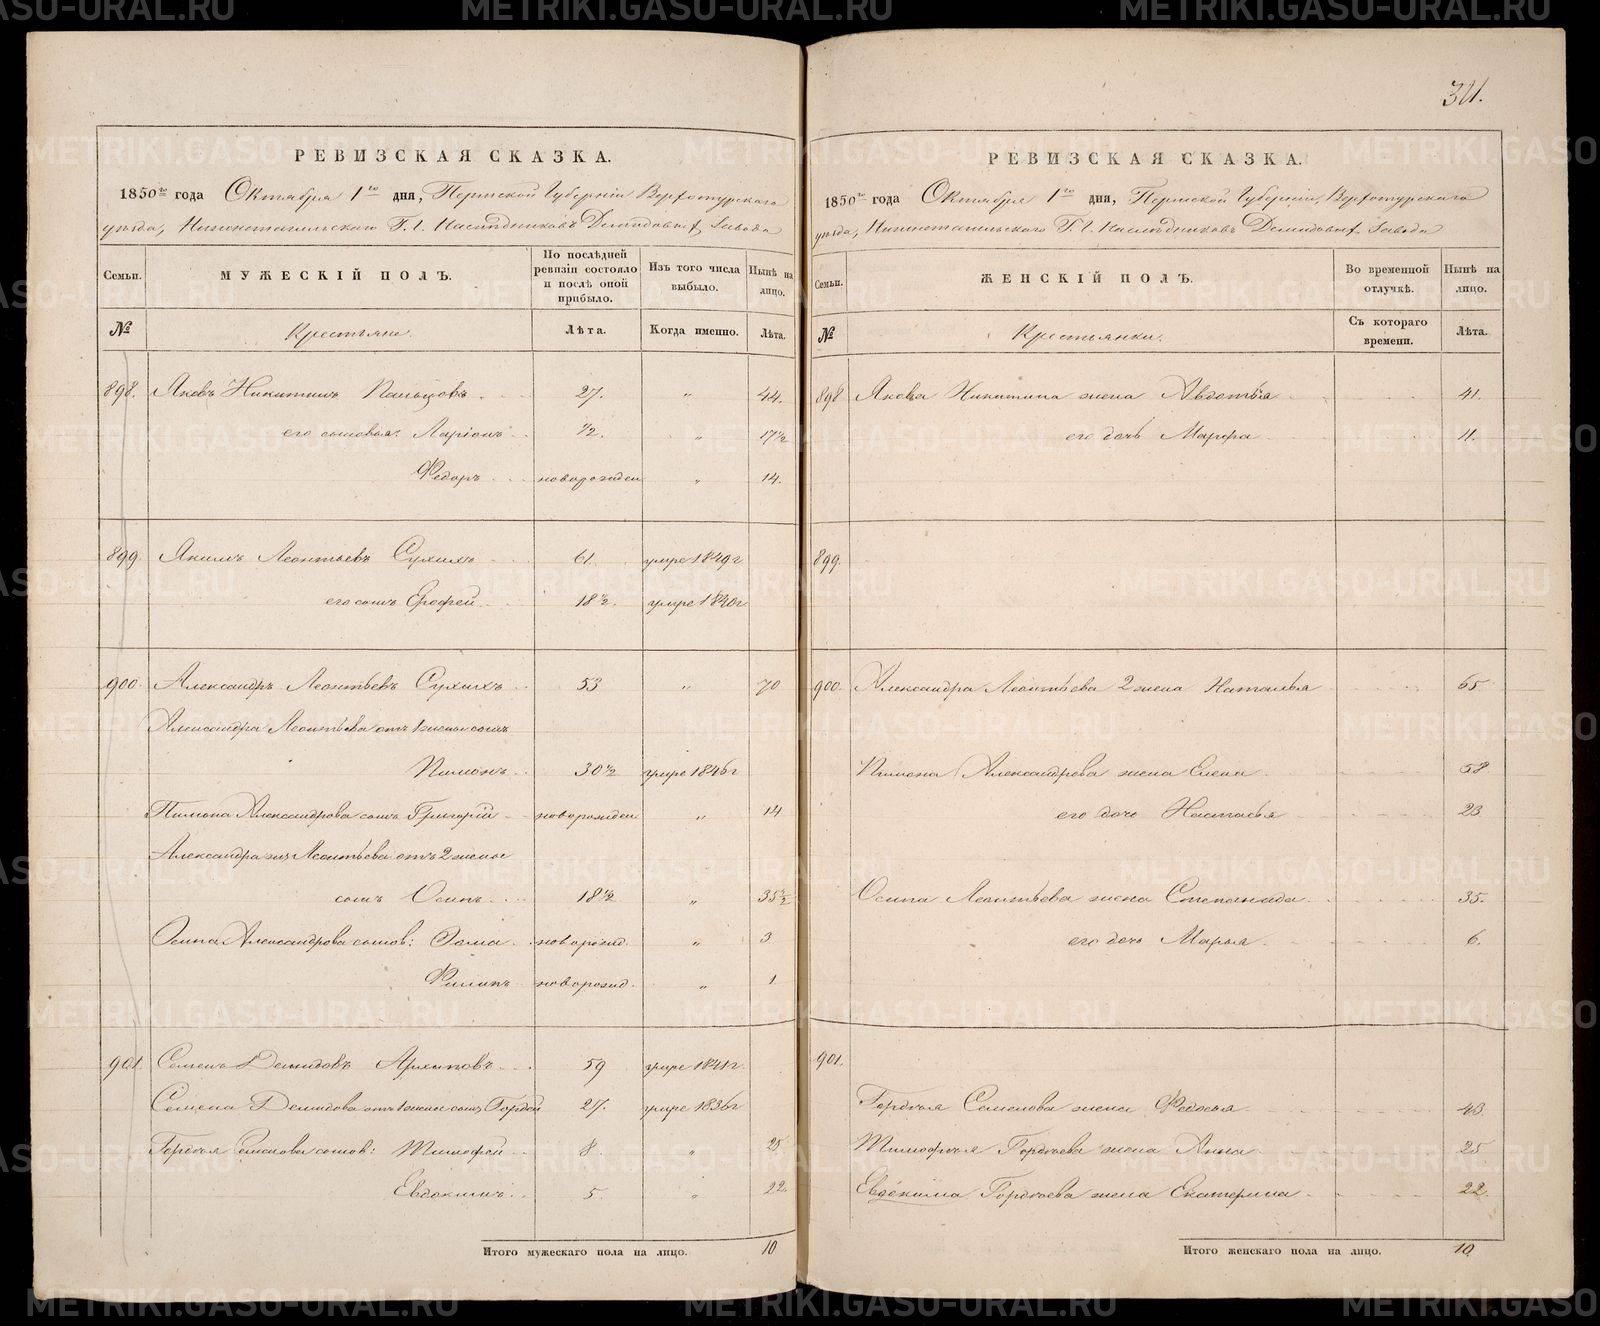 METRIKI.GASO-URAL.RU
311.
РЕВИЗСКАЯ СКАЗКА.
1850го года Октября 1го дня, Пермской Губернiи Верхотурскаго
уѣзда, Нижнетагильскаго Г.г. Наслѣдниковъ Демидовыхъ Завода
Семьи.
МУЖЕСКІЙ ПОЛЪ.
По послѣдней ревизіи состояло и послѣ оной прибыло.
Изъ того числа выбыло.
Нынѣ на лицо.
№
Крестьяне.
Лѣта.
Когда именно.
Лѣта.
898. Яковъ Никитинъ 27. " 44.
его сыновья: Ларіонъ 1/2. " 17 1/2
Федоръ новорожден " 14.
899. Якимъ Леонтьевъ Сухихъ 61. умре 1849г
его сынъ Ерофей 18 1/2. умре 1840г
900. Александръ Леонтьевъ Сухихъ 53 " 70
Александра Леонтьева отъ 1 жены сынъ
Пимонъ 30 1/2 умре 1846г
Пимона Александрова сынъ Григорій новорожден " 14
Александра же Леонтьева отъ 2 жены
сынъ Осипъ 18 1/2 " 35 1/2
Осипа Александрова сынов: Фома новорожд. " 3
Филипъ новорожд. " 1
901. Семенъ Демидовъ Архиповъ 59 умре 1841г.
Семена Демидова отъ 1 жены сынъ Гордѣй 27. умре 1836г
Гордѣя Семенова сынов: Тимофей 8. " 25
Евдокимъ 5. " 22.
Итого мужескаго пола на лицо. 10
РЕВИЗСКАЯ СКАЗКА.
1850го года Октября 1го дня, Пермской Губернiи, Верхотурскаго
уѣзда, Нижнетагильскаго Г.г. Наслѣдниковъ Демидовыхъ Завода
Семьи.
ЖЕНСКІЙ ПОЛЪ.
Во временной отлучкѣ.
Нынѣ на лицо.
№
Крестьянки.
Съ котораго времени.
Лѣта.
898 Якова Никитина жена Авдотья 41.
его дочь Марфа 11.
899.
900. Александра Леонтьева 2 жена Наталья 65
Пимона Александрова жена Елена 58
его дочь Настасья 23.
Осипа Леонтьева жена Степанида 35.
его дочь Марья 6.
901.
Гордѣя Семенова жена Федосья 43.
Тимофѣя Гордѣева жена Анна 25
Евдокима Гордѣева жена Екатерина 22.
Итого женскаго пола на лицо. 10.